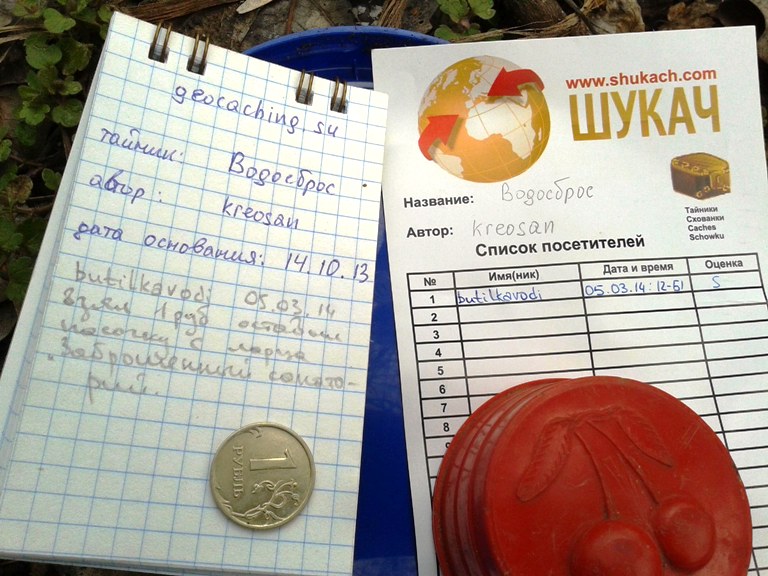 geocaching.su
тайник: Водосброс
автор: kreosan
дата основания: 14.10.13
butilkavodi 05.03.14
взял 1 руб оставил
пасочку с
Заброшенный санато-
рий.
1
РУБЛЬ
www.shukach.com
ШУКАЧ
Тайники
Схованки
Caches
Schowku
Название: Водосброс
Автор: kreosan
Список посетителей
№ Имя(ник) Дата и время Оценка
1 butilkavodi 05.03.14; 12-51 5
2
3
4
5
6
7
8
9